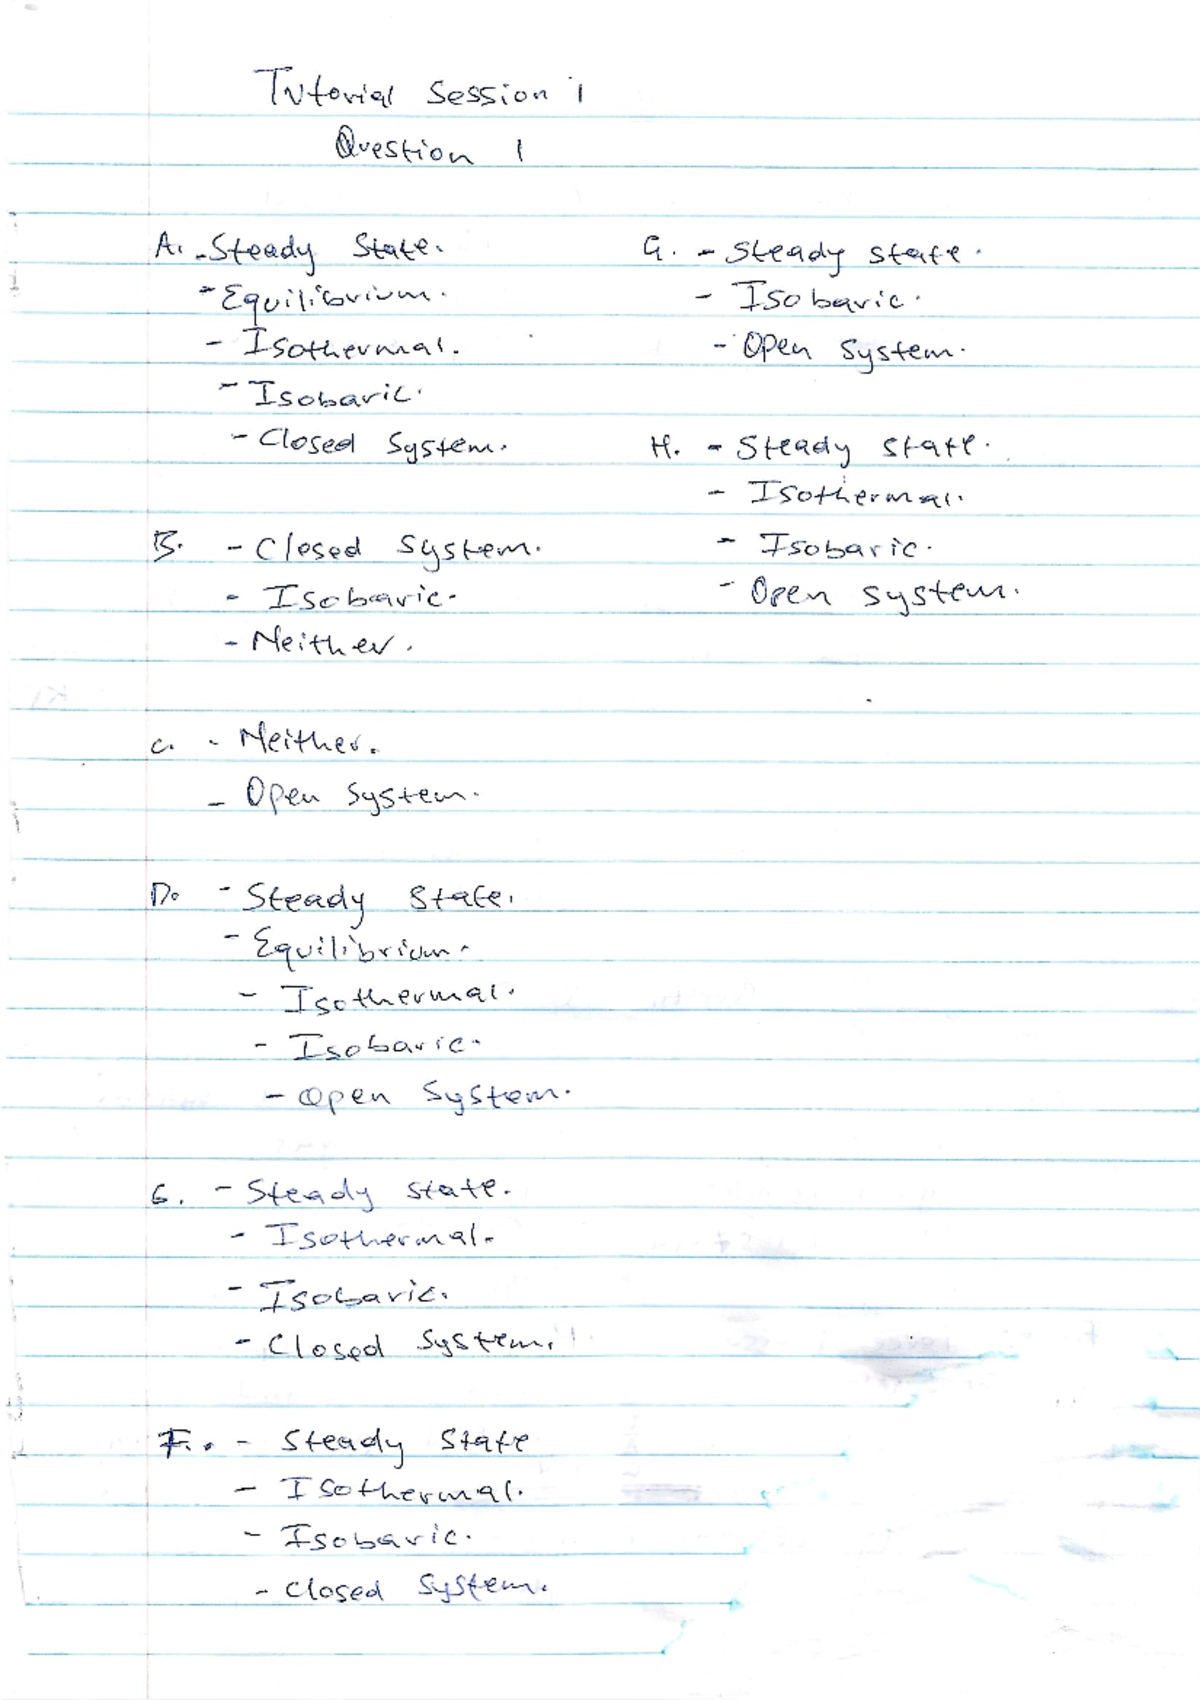 Tutorial Session 1
Question 1
A. - Steady State.
- Equilibrium.
- Isothermal.
- Isobaric.
- Closed System.
B. - Closed System.
- Isobaric.
- Neither.
C. - Neither.
- Open System.
D. - Steady State.
- Equilibrium.
- Isothermal.
- Isobaric.
- Open System.
E. - Steady State.
- Isothermal.
- Isobaric.
- Closed System.
F. - Steady State
- Isothermal.
- Isobaric.
- Closed System.
G. - Steady State.
- Isobaric.
- Open System.
H. - Steady State.
- Isothermal.
- Isobaric.
- Open System.